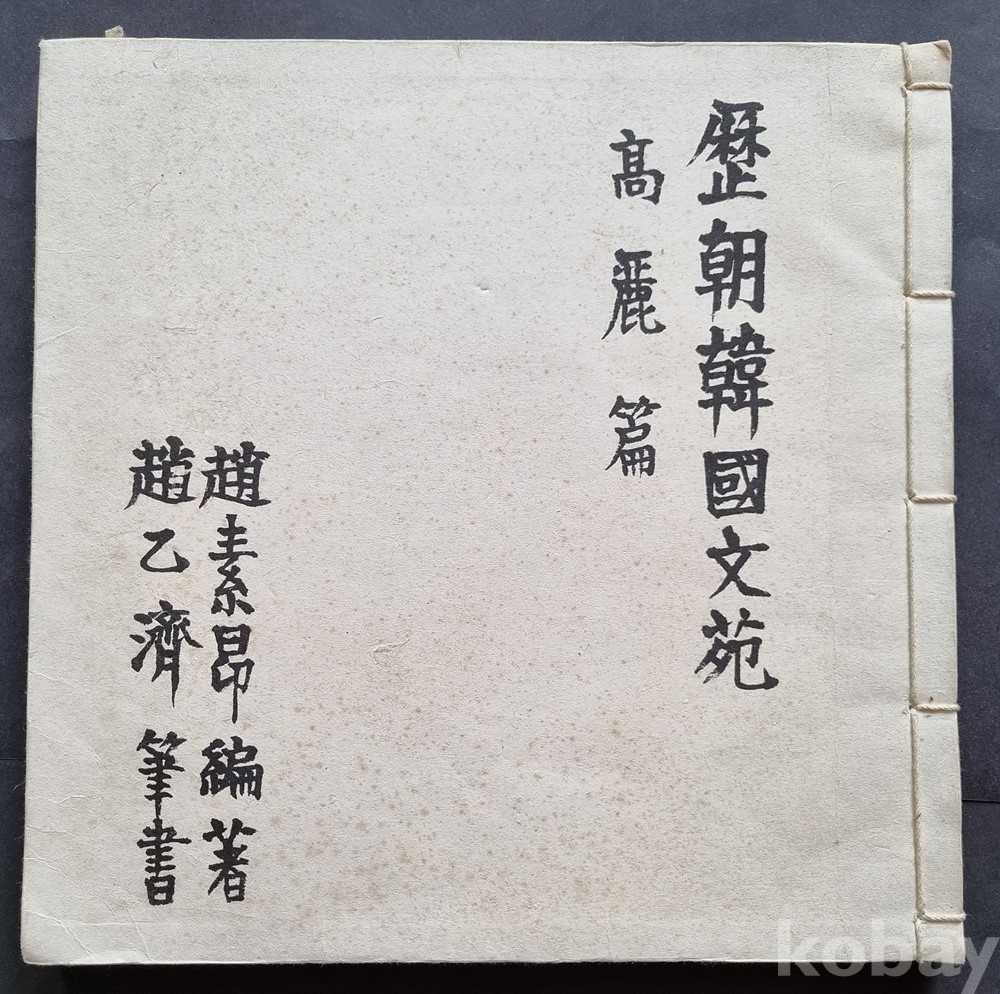 歷朝韓國文苑
髙麗篇
趙素昻編著
趙乙濟筆書
kobay